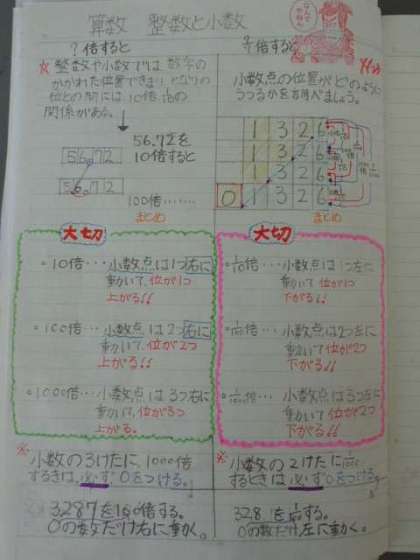 算数 整数と小数
?倍すると
整数や小数では 数字の
かかれた位置できまり となりの
位との間には 10倍, 1/10の
関係がある。
56.72を
10倍すると
56.72
56.72
100倍……
まとめ
大切
・10倍…小数点は1つ右に
動いて、位が1つ
上がる!!
・100倍…小数点は2つ右に
動いて、位が2つ
上がる!!
・1000倍…小数点は3つ右に
動いて、位が3つ
上がる!!
※小数の3けたに、1000倍
するときは必ず0をつける。
3287を100倍する。
0の数だけ右に動く。
倍すると
小数点の位置が どのように
うつるかを調べましょう。
1 3 2 6
1 3 2 6
1 3 2 6
0 1 3 2 6
まとめ
大切
・1/10倍…小数点は1つ左に
動いて 位が1つ
下がる!!
・1/100倍…小数点は2つ左に
動いて 位が2つ
下がる!!
・1/1000倍…小数点は3つ左に
動いて 位が3つ
下がる!!
※小数の2けたに 1/1000
するときは 必ず0をつける。
328
する。
0の数だけ左に動く。